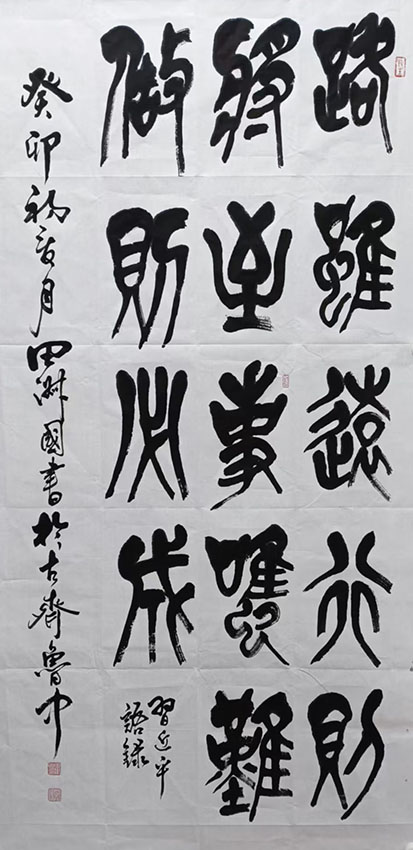 路雖遠行則
將至事雖難
做則必成
習近平
語録
癸卯初夏月田國書於古齊魯中